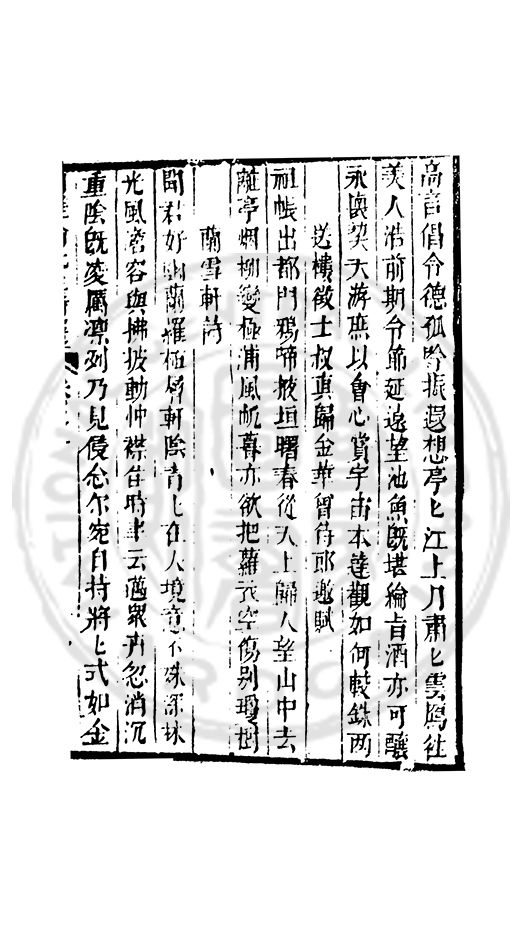 高言倡令德孤吟振遐想亭〻江上月肅〻雲鴈徃
美人浩前期令節延遠望池魚旣堪綸旨酒亦可釀
永懷契大游庶以會心賞宇宙本達觀如何較銖两
送樓徵士叔真歸金華曾侍郎邀賦
祖帳出都門鴉啼掖垣曙春從天上歸人望山中去
離亭烟柳變極浦風帆暮亦欲把蘿衣空傷别瓊樹
蘭雪軒詩
聞君好幽蘭羅植層軒陰青〻在人境意不殊深林
光風澹容與拂披動忡襟昔時半云邁衆卉忽消沉
重陰旣凌厲凛列乃見侵念尔宛自持將〻式如金